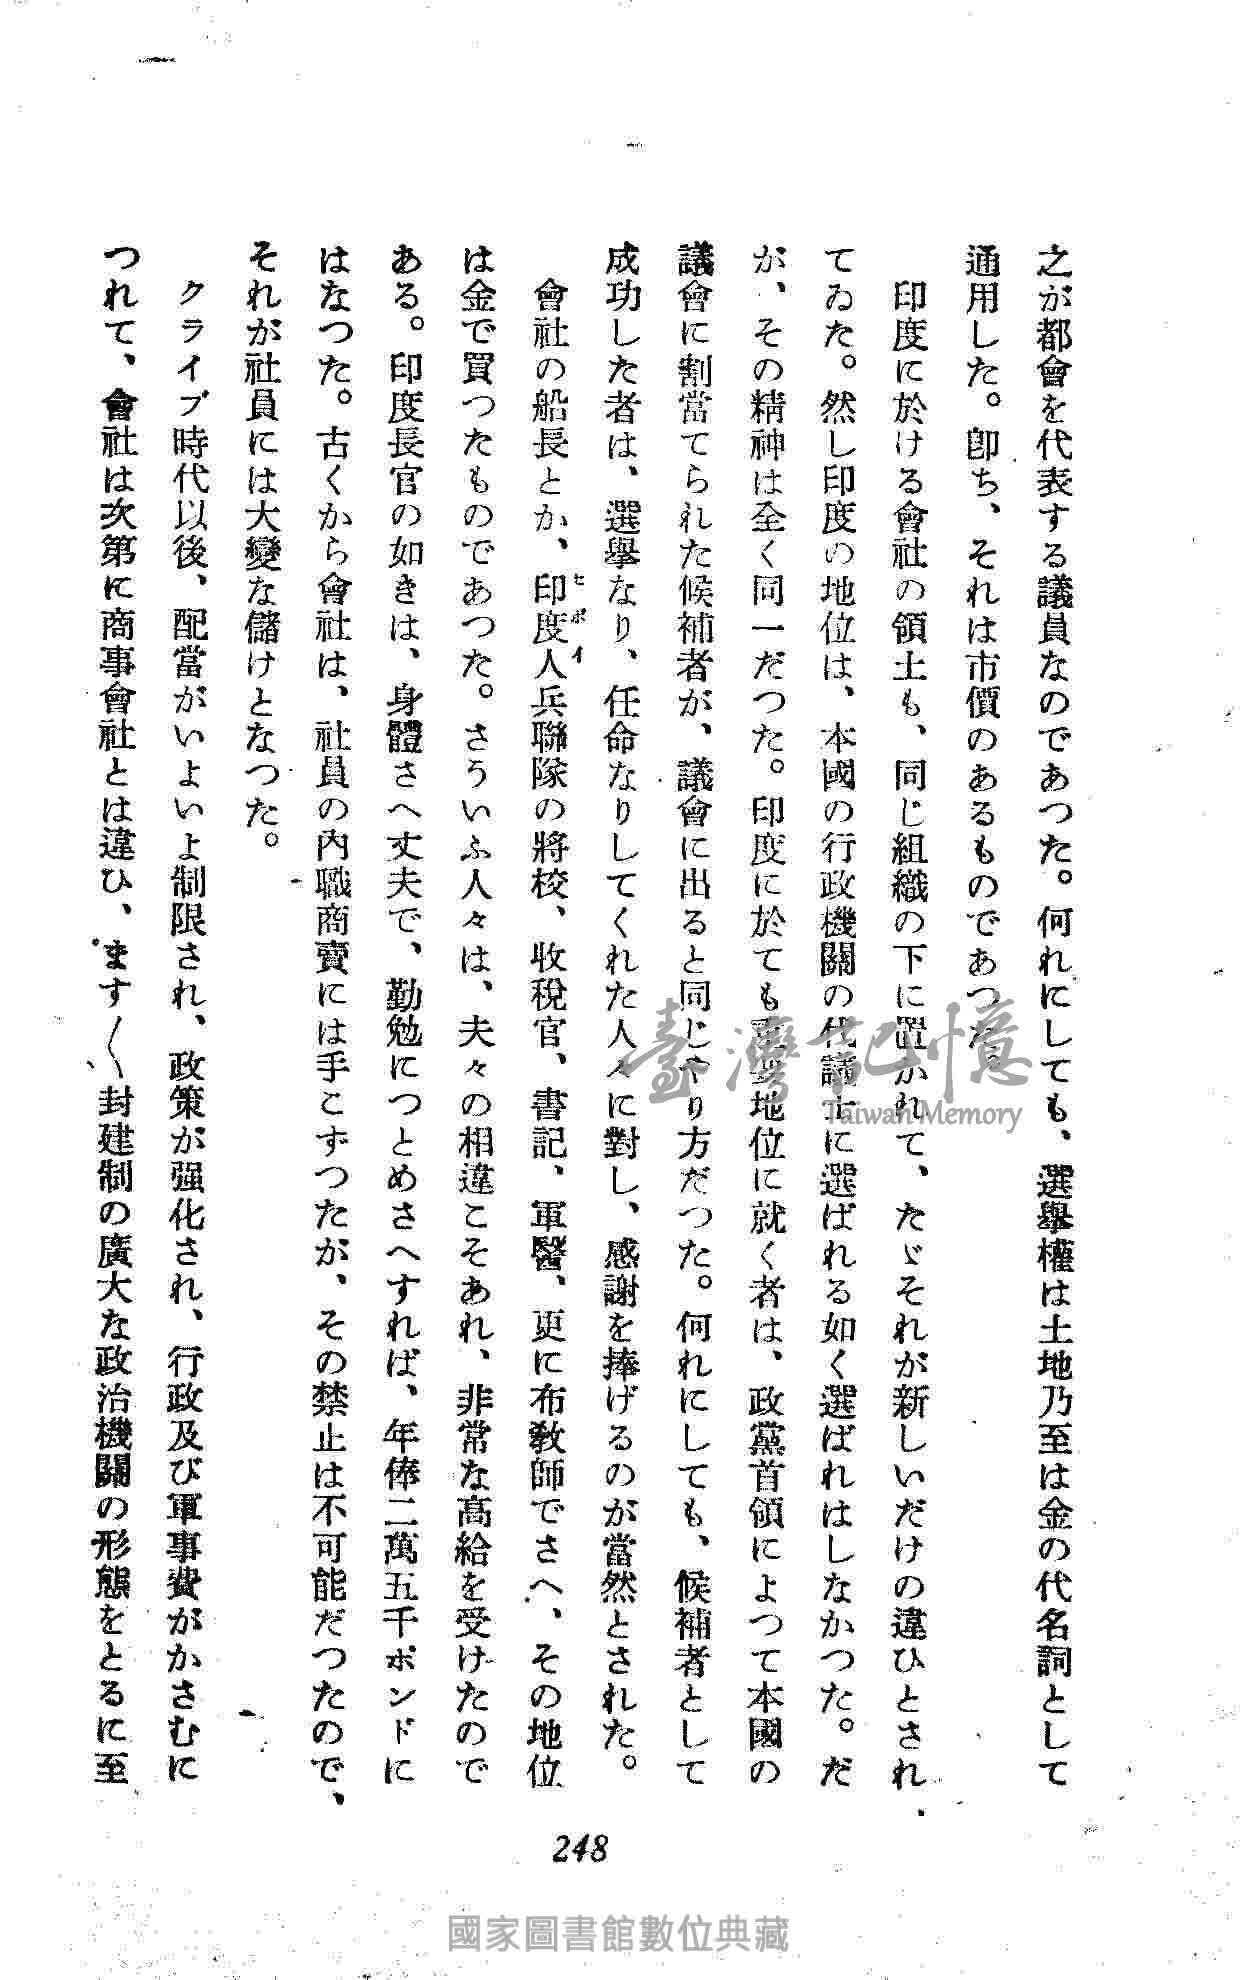 之が都會を代表する議員なのであつた。何れにしても、選擧權は土地乃至は金の代名詞として
通用した。卽ち、それは市價のあるものであつた。
印度に於ける會社の領土も、同じ組織の下に置かれて、たゞそれが新しいだけの違ひとされ、
てゐた。然し印度の地位は、本國の行政機關の代議士に選ばれる如く選ばれはしなかつた。だ
が、その精神は全く同一だつた。印度に於ても重要地位に就く者は、政黨首領によつて本國の
議會に割當てられた候補者が、議會に出ると同じやり方だつた。何れにしても、候補者として
成功した者は、選擧なり、任命なりしてくれた人々に對し、感謝を捧げるのが當然とされた。
會社の船長とか、印度人兵聯隊の將校、收稅官、書記、軍醫、更に布教師でさへ、その地位
ヒポイ
は金で買つたものであつた。さういふ人々は、夫々の相違こそあれ、非常な高給を受けたので
ある。印度長官の如きは、身體さへ丈夫で、勤勉につとめさへすれば、年俸二萬五千ポンドに
はなつた。古くから會社は、社員の內職商賣には手こずつたが、その禁止は不可能だつたので、
それが社員には大變な儲けとなつた。
クライブ時代以後、配當がいよいよ制限され、政策が强化され、行政及び軍事費がかさむに
つれて、會社は次第に商事會社とは違ひ、ます〱封建制の廣大な政治機關の形態をとるに至
248
臺灣記憶
Taiwan Memory
國家圖書館數位典藏